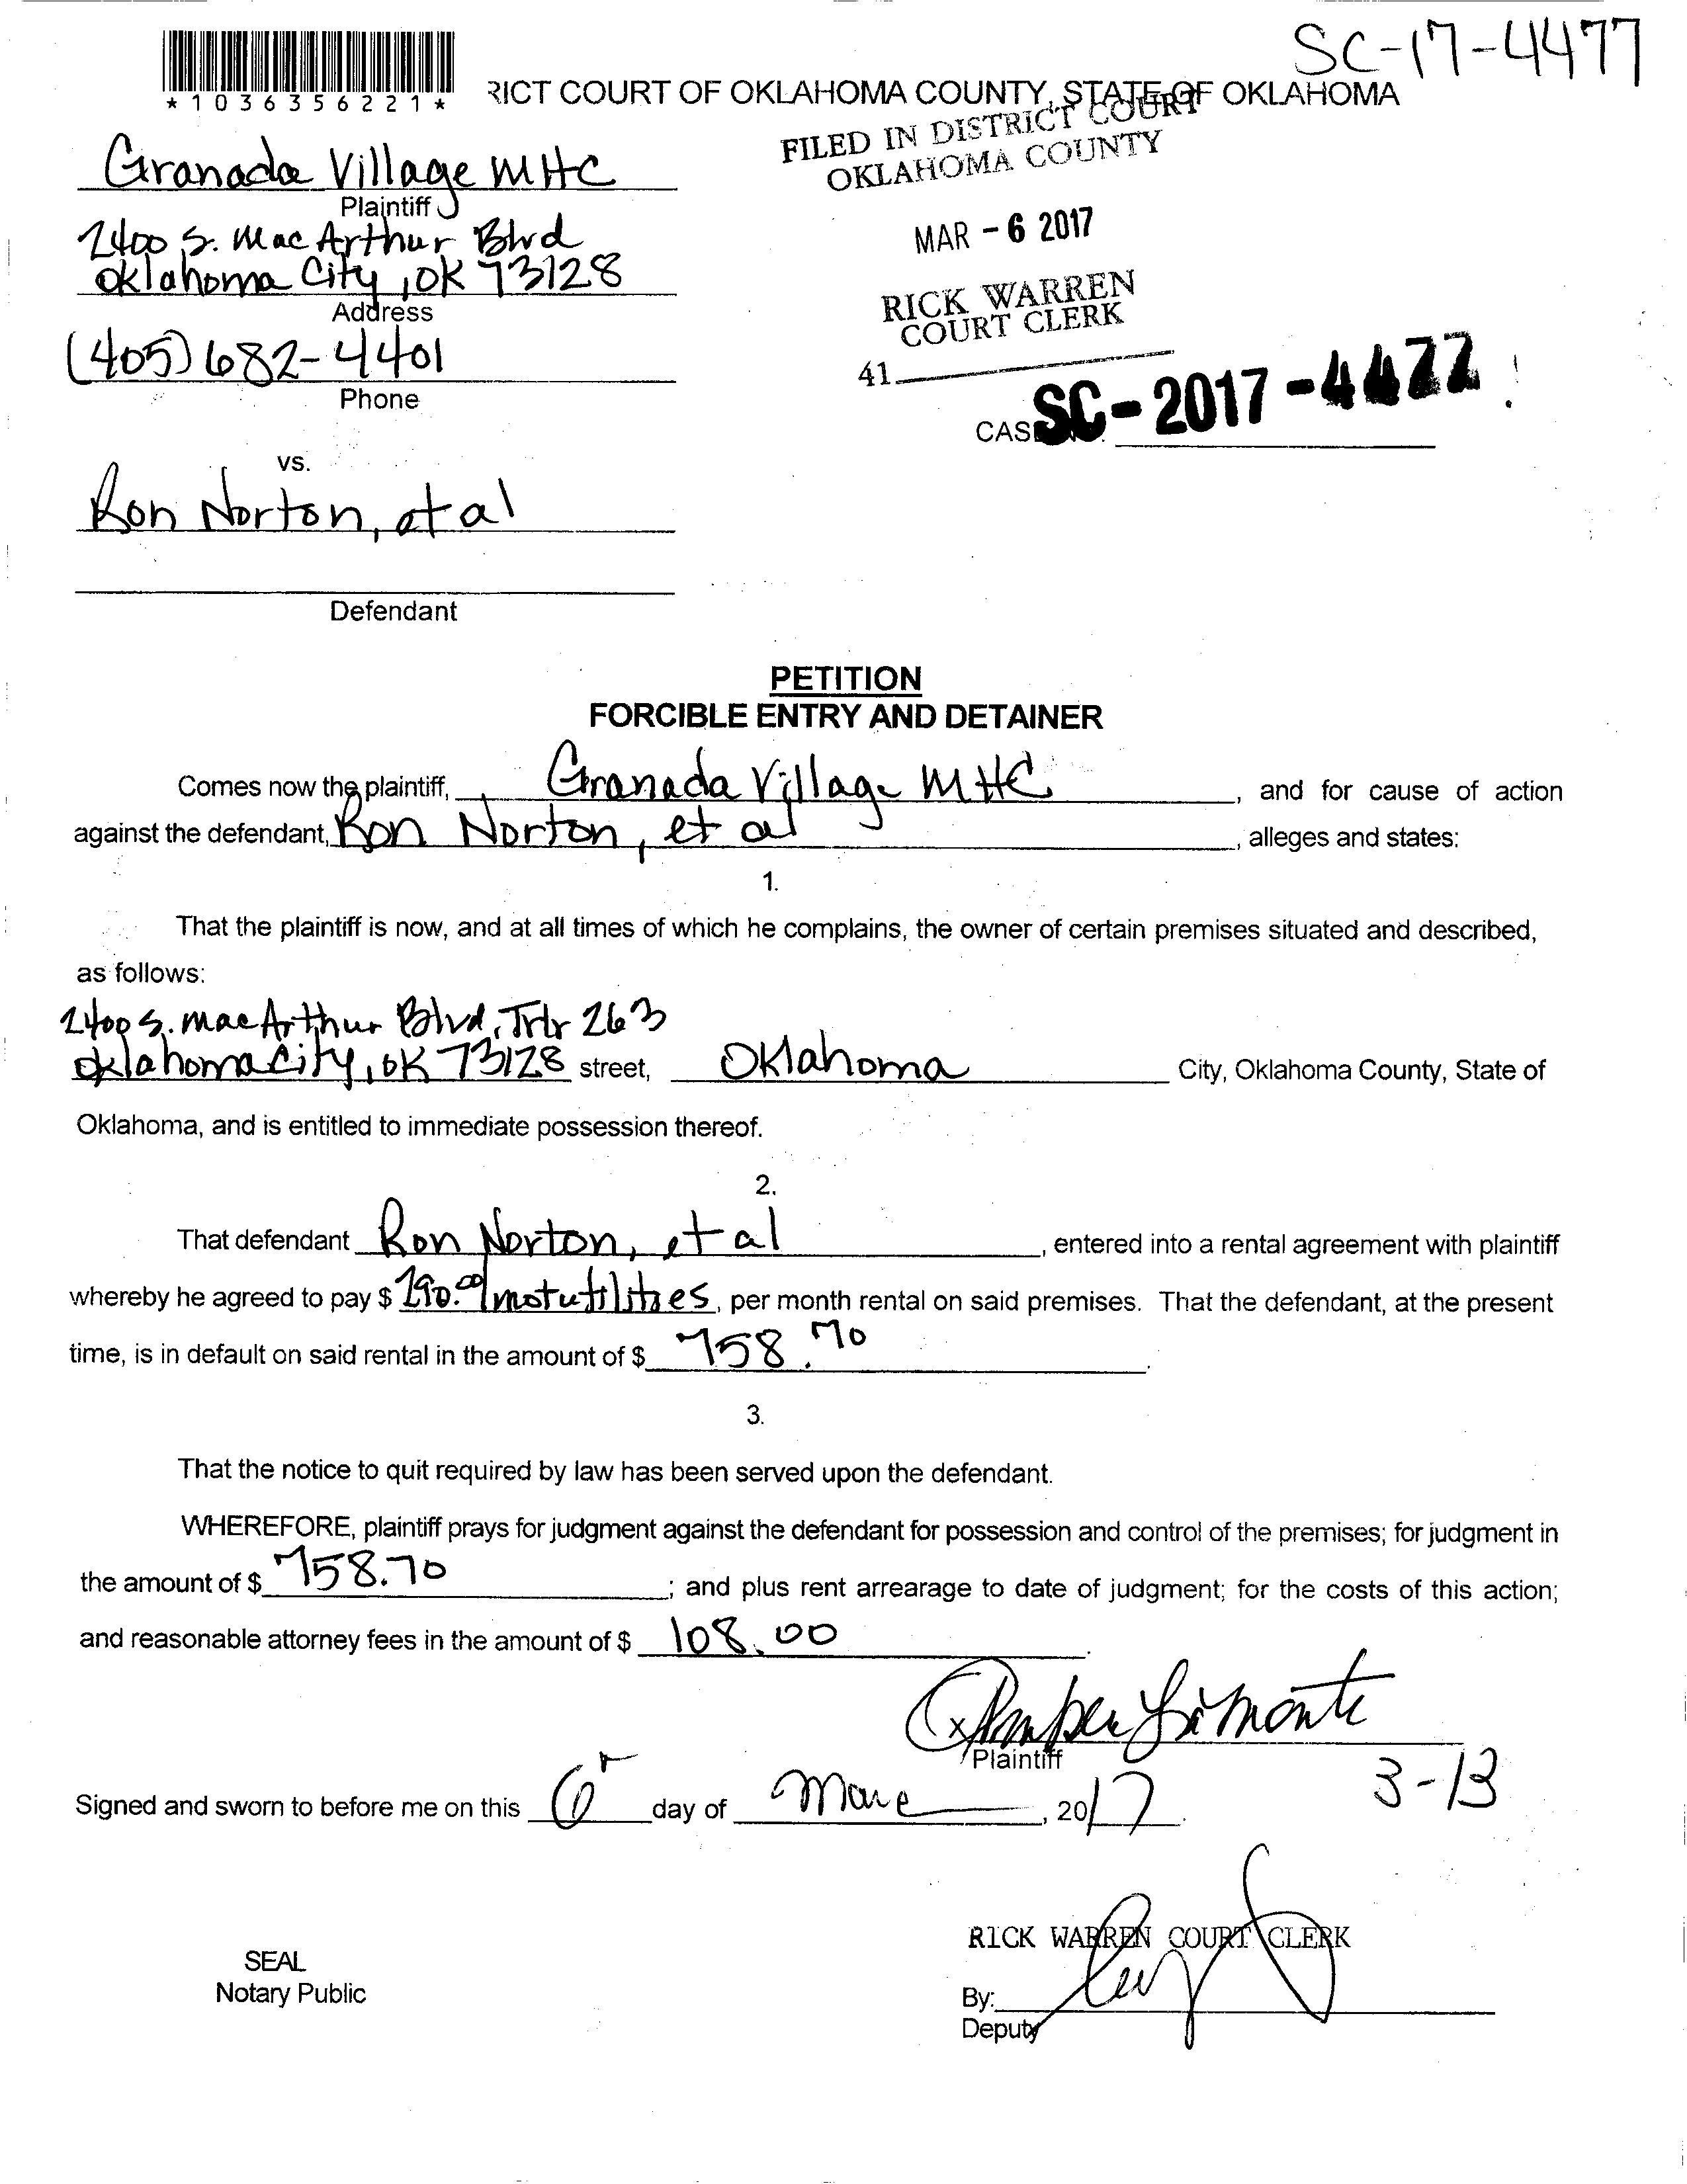 SC-17-4477
*1036356221*
RICT COURT OF OKLAHOMA COUNTY, STATE OF OKLAHOMA
FILED IN DISTRICT COURT
OKLAHOMA COUNTY
Granada Village MHC
Plaintiff
MAR - 6 2017
2400 S. MacArthur Blvd
Oklahoma City, OK 73128
Address
RICK WARREN
COURT CLERK
(405) 682-4401
Phone
41
CAS SC-2017-4477
vs.
Ron Norton, et al
Defendant
PETITION
FORCIBLE ENTRY AND DETAINER
Comes now the plaintiff, Granada Village MHC, and for cause of action
against the defendant, Ron Norton, et al, alleges and states:
1.
That the plaintiff is now, and at all times of which he complains, the owner of certain premises situated and described,
as follows:
2400 S. MacArthur Blvd, Trlr 263
Oklahoma City, OK 73128 street, Oklahoma City, Oklahoma County, State of
Oklahoma, and is entitled to immediate possession thereof.
2.
That defendant Ron Norton, et al, entered into a rental agreement with plaintiff
whereby he agreed to pay $ 290.00/mo + utilities, per month rental on said premises. That the defendant, at the present
time, is in default on said rental in the amount of $ 758.70.
3.
That the notice to quit required by law has been served upon the defendant.
WHEREFORE, plaintiff prays for judgment against the defendant for possession and control of the premises; for judgment in
the amount of $ 758.70; and plus rent arrearage to date of judgment; for the costs of this action;
and reasonable attorney fees in the amount of $ 108.00.
x Amber
Plaintiff
3-13
Signed and sworn to before me on this 6 day of , 2017.
RICK WARREN COURT CLERK
SEAL
Notary Public
By:
Deputy